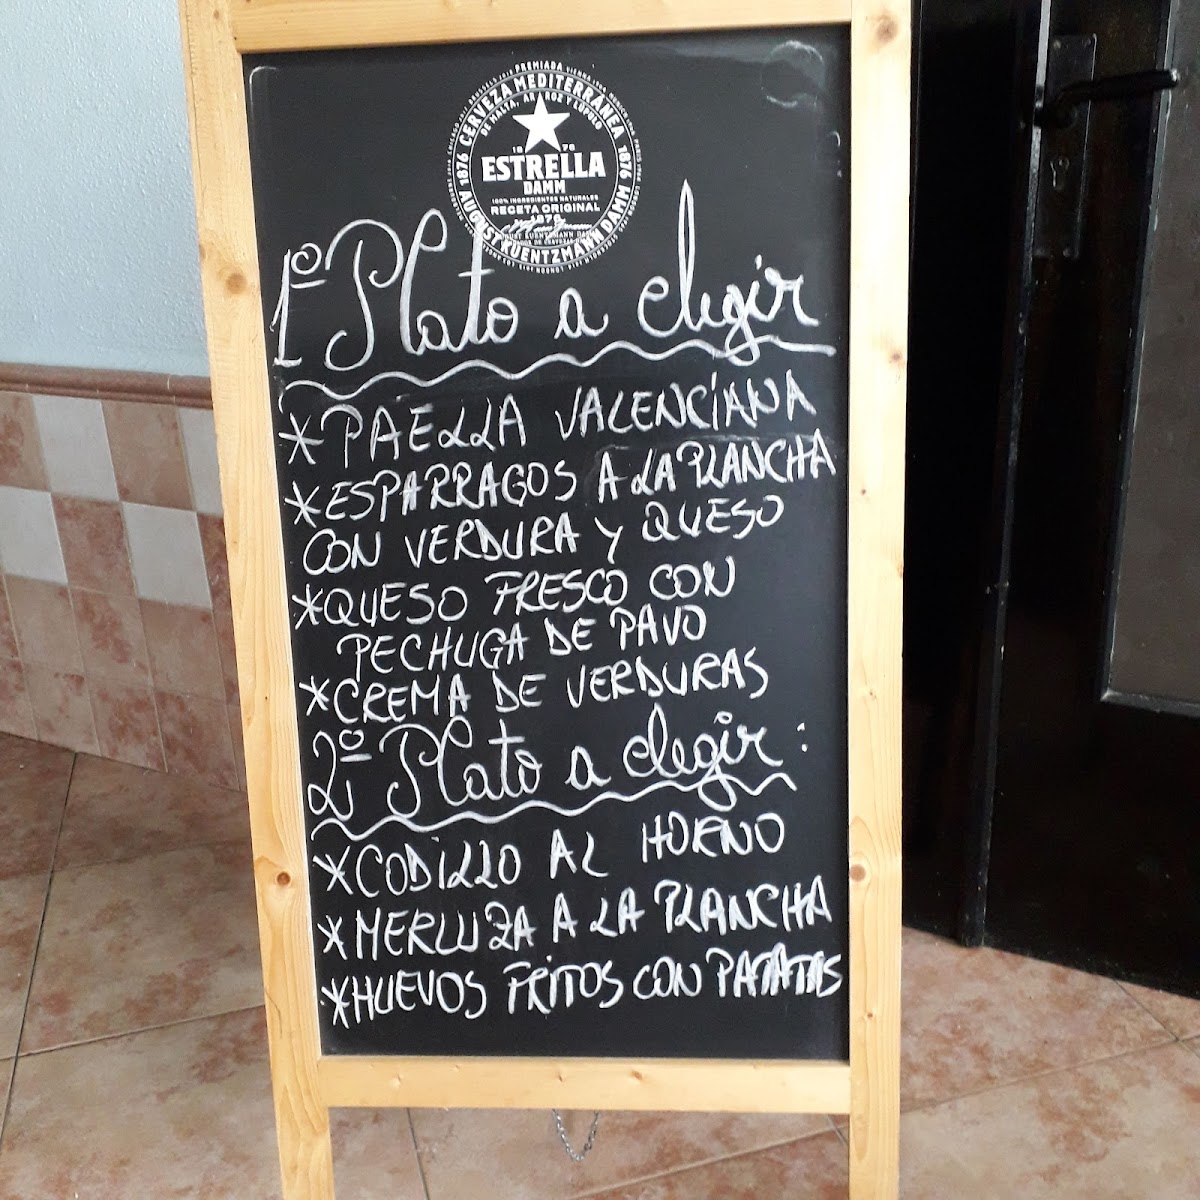 PREMIADA
CERVEZA MEDITERRÁNEA
DE MALTA, ARROZ Y LÚPULO
1876
1876
18 76
ESTRELLA
DAMM
100% INGREDIENTES NATURALES
RECETA ORIGINAL
1876
AUGUST KUENTZMANN DAMM
1º Plato a elegir
*PAELLA VALENCIANA
*ESPARRAGOS A LA PLANCHA
CON VERDURA Y QUESO
*QUESO FRESCO CON
PECHUGA DE PAVO
*CREMA DE VERDURAS
2º Plato a elegir:
*CODILLO AL HORNO
*MERLUZA A LA PLANCHA
*HUEVOS FRITOS CON PATATAS